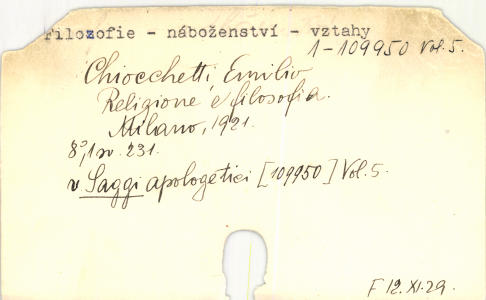 Filozofie - náboženství - vztahy
1-109950 Vol. 5.
Chiocchetti, Emilio
Religione e filosofia.
Milano, 1921.
8°, 1 sv. 231.
v Saggi apologetici [109950] Vol. 5.
F 12. XI. 29.